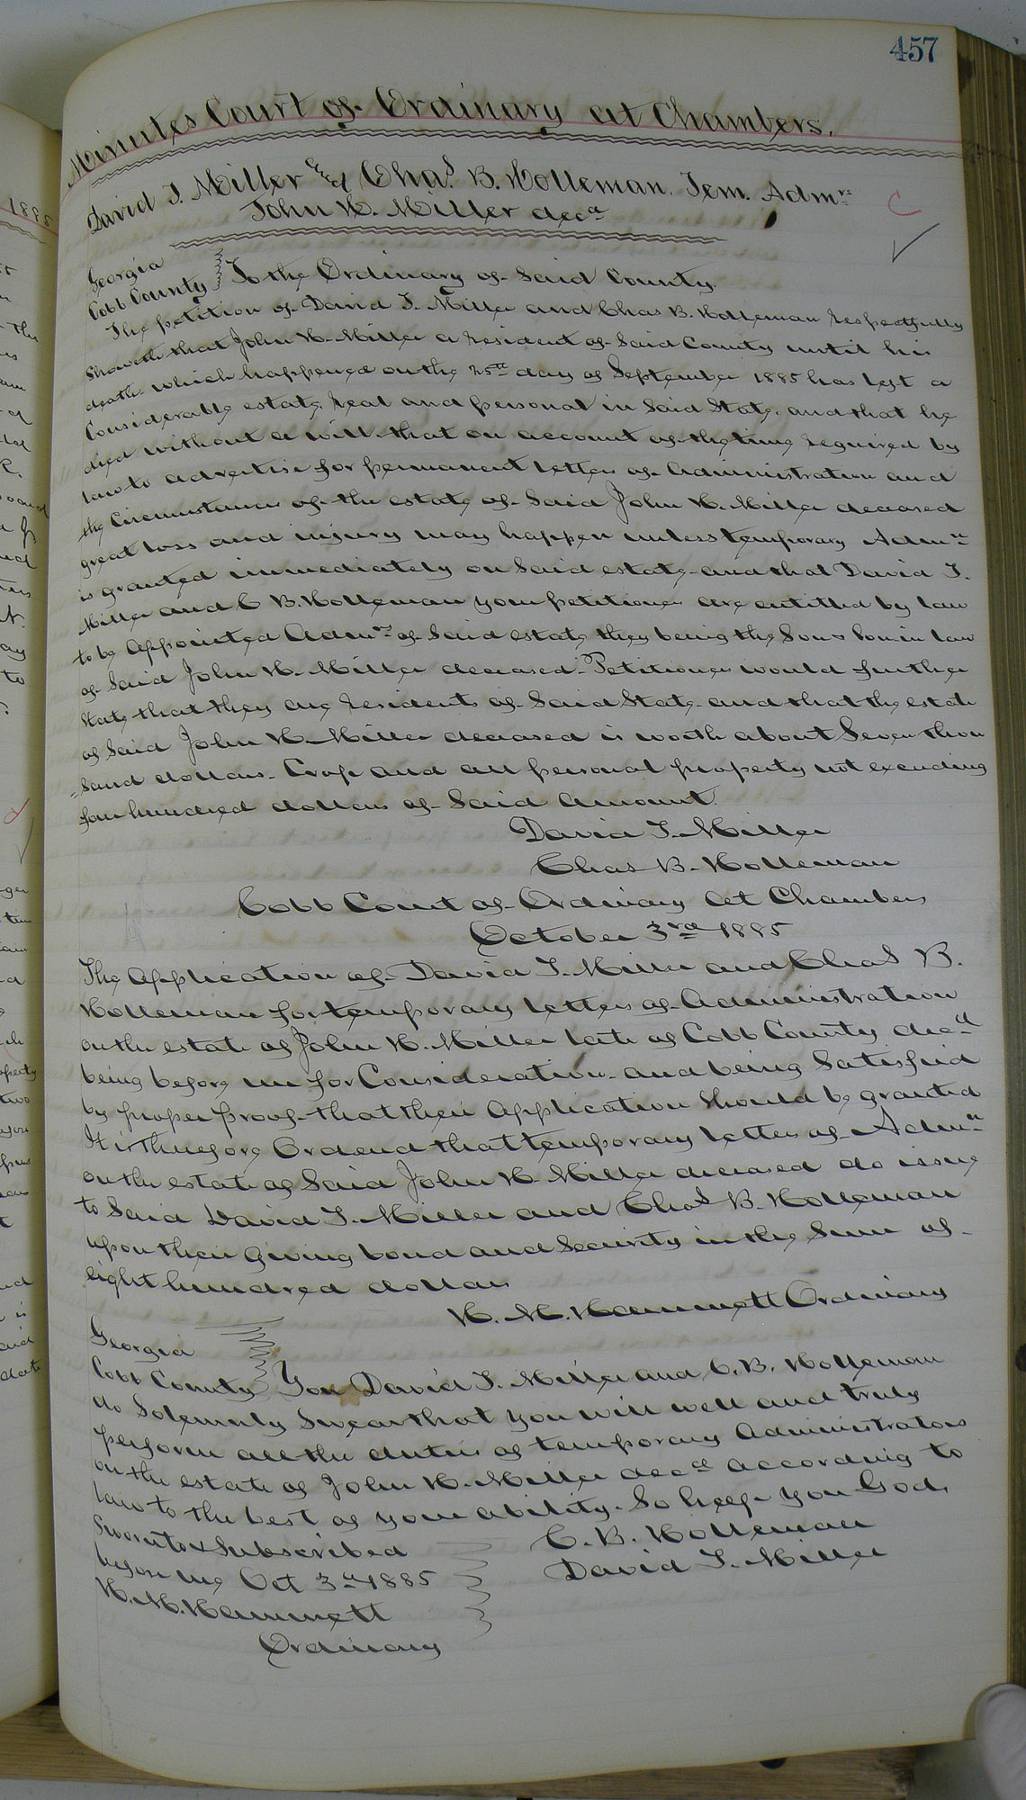 457
Minutes Court of Ordinary at Chambers.
David T. Miller and Chas. B. Holleman. Tem. Admrs
John H. Miller decd
Georgia
Cobb County To the Ordinary of Said County.
The petition of David T. Miller and Chas B. Holleman respectfully
Showeth that John H. Miller a resident of Said County until his
death which happened on the 25th day of September 1885 has left a
Considerable estate real and personal in Said State. and that he
died without a will. that on account of the time required by
law to advertise for permanent letters of Administration and
the Circumstances of the estate of Said John H. Miller deceased
great loss and injury may happen unless temporary Admn
is granted immediately on Said estate and that David T.
Miller and C B. Holleman your petitioners are entitled by law
to be Appointed Admrs of Said estate they being the Son & Son in law
of Said John H. Miller deceased. Petitioners would further
State that they are residents of Said State and that the estate
of Said John H. Miller deceased is worth about Seven thou
-sand dollars. Crop and all personal property not exceeding
four hundred dollars of Said Amount.
David T. Miller
Chas B. Holleman
Cobb Court of Ordinary At Chambers
October 3rd 1885
The Application of David T. Miller and Chas B.
Holleman for temporary letters of Administration
on the estate of John H. Miller late of Cobb County decd
being before me for Consideration. and being Satisfied
by proper proof that their Application Should be granted
It is therefore Ordered that temporary letters of Admn
on the estate of Said John H Miller deceased do issue
to Said David T. Miller and Chas B. Holleman
upon their giving bond and Security in the Sum of
eight hundred dollars
H. M. Hammett Ordinary
Georgia
Cobb County You David T. Miller and C. B. Holleman
do Solemnly Swear that you will well and truly
perform all the duties of temporary Administrators
on the estate of John H. Miller decd according to
law to the best of your ability. So help you God.
Sworn to & Subscribed
before me Oct 3rd 1885
H. M. Hammett
Ordinary
C. B. Holleman
David T. Miller